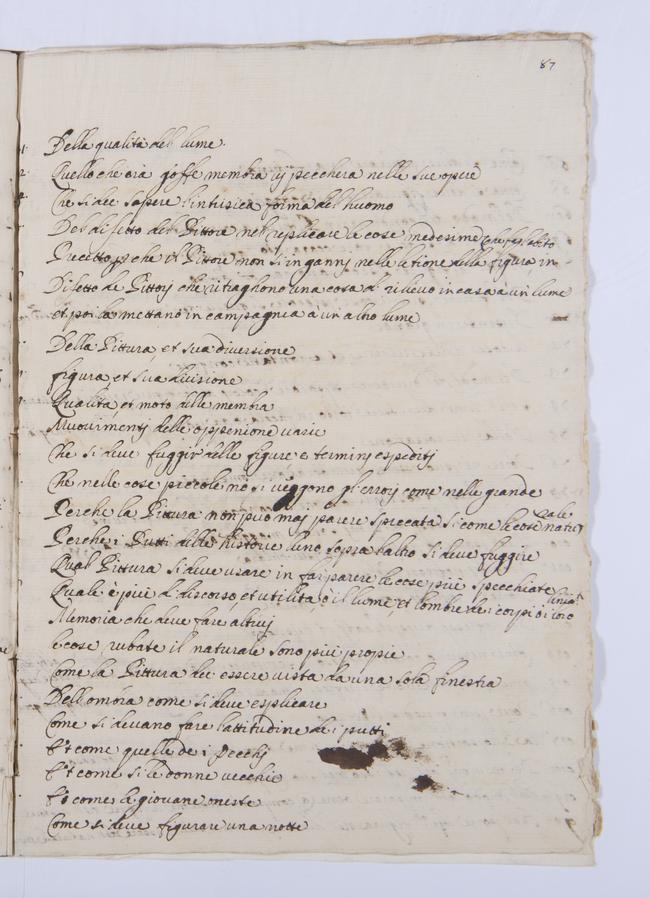 87
Della qualità del lume.
Quello che ora goffe membra li pecchera nelle sue opere
Che si dee sapere l'intrisica forma del huomo
Del difetto del Pittore nel replicare le cose medesime
Precetto p che il Pittore non s'inganni nelle letione della figura in
Difetto de Pittorj che ritraghono una cosa di rilievo in casa à un lume
et poi la mettano in campagnia à un altro lume
Della Pittura et sua diversione
figura et sua divisione
Qualità et moto delle membra
Muovimentj delle oppenione varie
Che si deve fuggir delle figure e terminj espeditj
Che nelle cose piccole no si veggono gl'errorj come nelle grande
Perche la Pittura non può maj parere spiccata si come le cose naturale
Perche i Putti delle historie l'uno sopra l'altro si deve fuggire
Qual Pittura si deve usare in far parere le cose più specchiate
Quale è più di discorso, et utilità, ò il lume, et l'ombre de i corpi ò i loro
Memoria che deve fare altruj
le cose rubate il naturale sono più propie
Come la Pittura dee essere vista da una sola finestra
Dell'ombra come si deve esplicare
Come si devano fare l'attitudine de i putti
Et come quelle de i Vecchj
Et come si le donne vecchie
Et come le giovane oneste
Come si deve figurare una notte